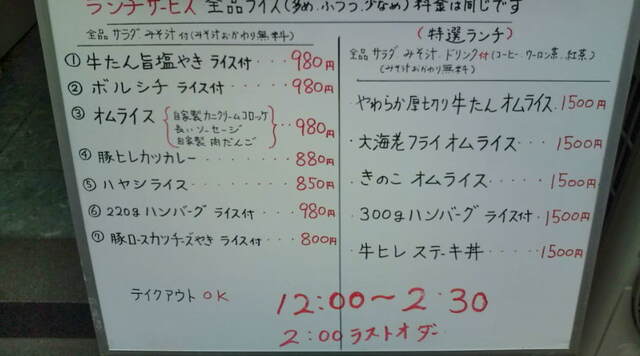 ランチサービス 全品ライス(多め、ふつう、少なめ)料金は同じです
全品 サラダ みそ汁付(みそ汁おかわり無料)
① 牛たん旨塩やき ライス付 ・・ 980円
② ボルシチ ライス付 ・・・・ 980円
③ オムライス {自家製カニクリームコロッケ
長いソーセージ
自家製 肉だんご} ・・ 980円
④ 豚ヒレカツカレー ・・・・・・ 880円
⑤ ハヤシライス ・・・・・・・ 850円
⑥ 220gハンバーグ ライス付 ・・・ 980円
⑦ 豚ロースカツチーズやき ライス付 ・・・・ 800円
テイクアウト OK
(特選ランチ)
全品 サラダ、みそ汁、ドリンク付(コーヒー、ウーロン茶、紅茶)
(みそ汁おかわり無料)
やわらか厚切り牛たん オムライス・1500円
大海老フライ オムライス・・・・1500円
きのこ オムライス・・・・・1500円
300gハンバーグ ライス付・1500円
牛ヒレ ステーキ丼・・・・1500円
12:00〜2:30
2:00ラストオーダー